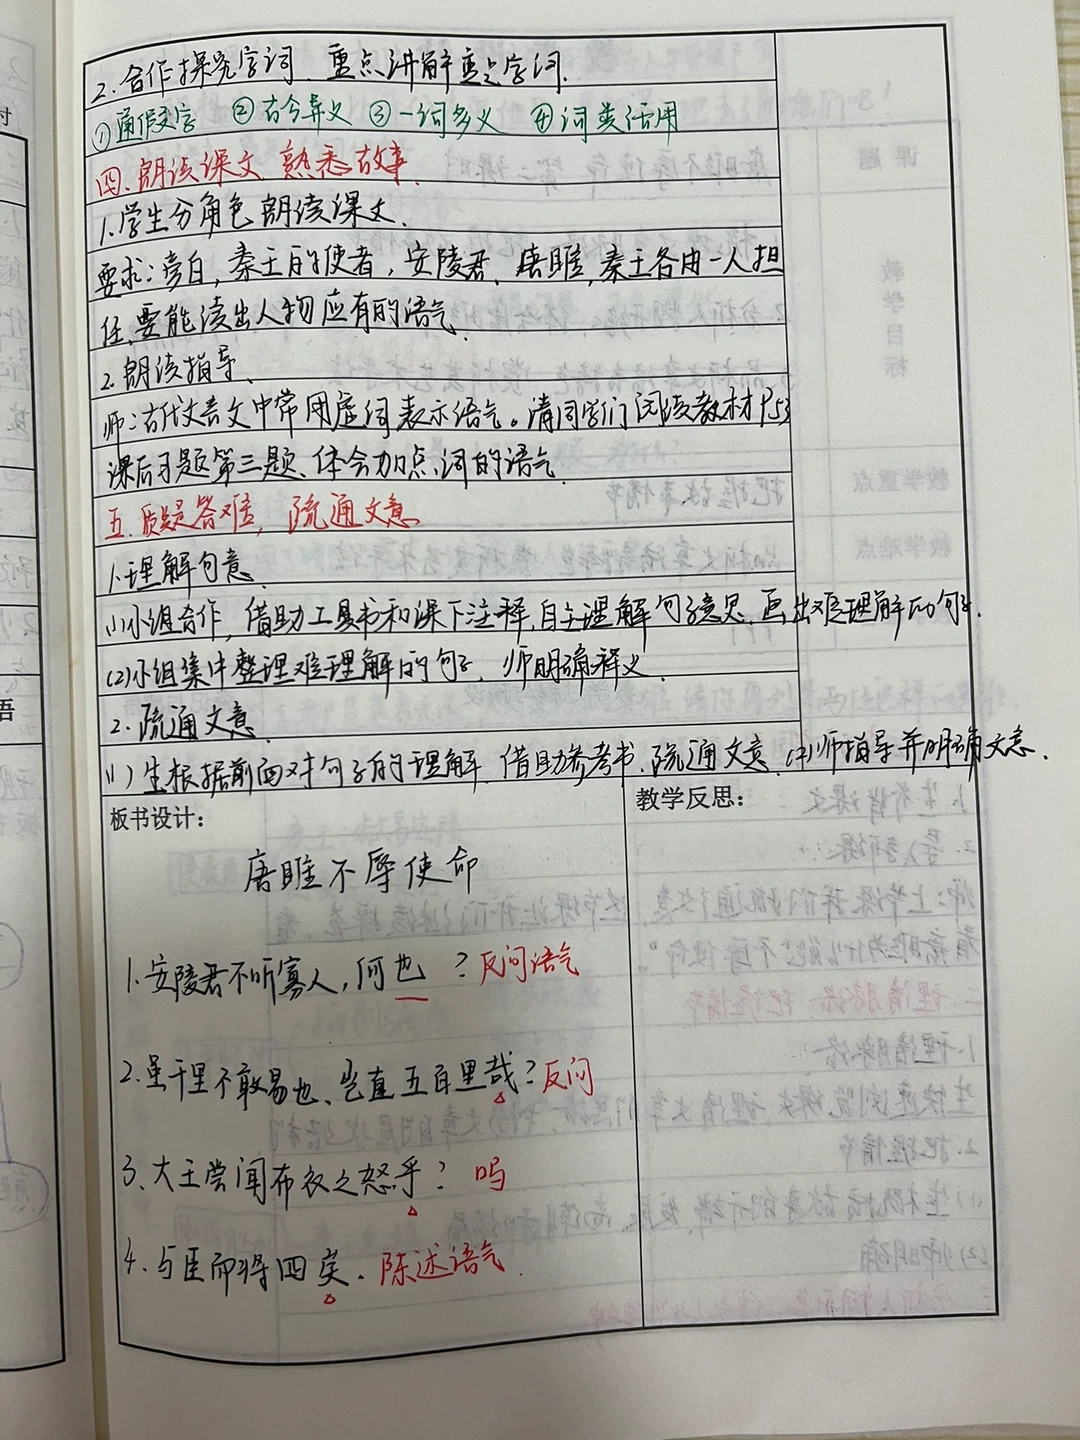 2.合作探究字词、重点讲解重点字词.
①通假字 ②古今异义 ③一词多义 ④词类活用
四、朗读课文 熟悉故事.
1.学生分角色朗读课文.
要求:旁白,秦王的使者,安陵君、唐雎,秦王各由一人担
任,要能读出人物应有的语气.
2.朗读指导.
师:古代文言文中常用虚词表示语气。请同学们阅读教材P53
课后习题第三题、体会加点词的语气.
五.质疑答难,疏通文意
1.理解句意.
(1)小组合作,借助工具书和课下注释,自主理解句子意思.画出难理解的句子.
(2)小组集中整理难理解的句子.师明确释义.
2.疏通文意.
(1)生根据前面对句子的理解.借助参考书.疏通文意.(2)师指导并明确文意.
板书设计:
唐雎不辱使命
1.安陵君不听寡人,何也?反问语气
2.虽千里不敢易也、岂直五百里哉?反问
3、大王尝闻布衣之怒乎?吗
4.与臣而将四矣.陈述语气.
教学反思: